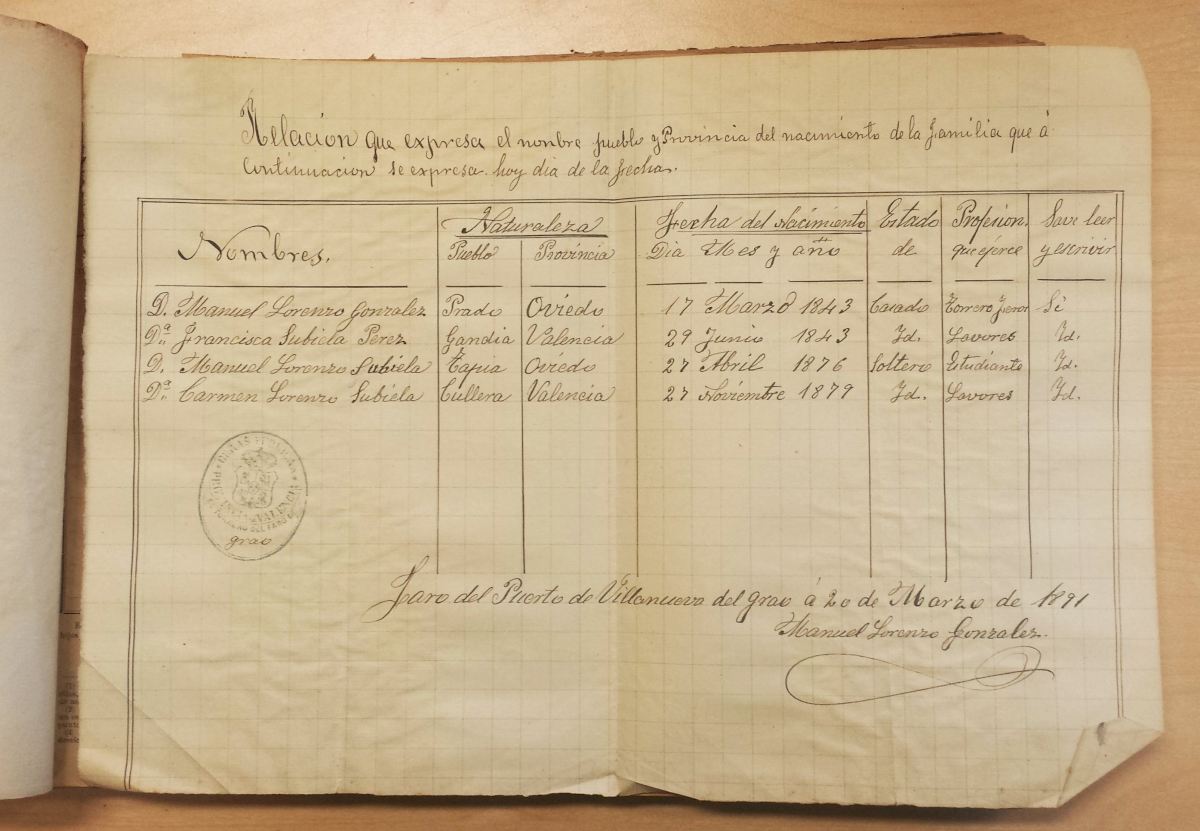 Relacion que expresa el nonbre pueblo y Provincia del nacimiento de la familia que á
Continuacion se expresa hoy dia de la fecha.
Nombres. Naturaleza Fexha del Nacimiento Estado Profesion. Save leer
Pueblo Provincia Dia Mes y año de que ejerce y escrivir
D. Manuel Lorenzo Gonzalez Prado Oviedo 17 Marzo 1843 Casado Torrero Sí
Dª Francisca Subiela Perez Gandia Valencia 29 Junio 1843 Id. Lavores Id.
D. Manuel Lorenzo Subiela Tapia Oviedo 27 Abril 1876 Soltero Estudiante Id.
Dª Carmen Lorenzo Subiela Cullera Valencia 27 Noviembre 1879 Id. Lavores Id.
OBRAS PUBLICAS
VALENCIA
DEL FARO
grao
Faro del Puerto de Villanueva del grao á 20 de Marzo de 1891
Manuel Lorenzo Gonzalez.